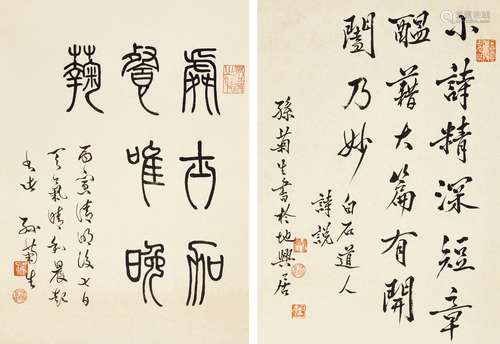 小詩精深短章
醞藉大篇有開
闔乃妙
白石道人
詩說
孫菊生書於地興居
加
餐唯晚
蘜
丙寅清明後七日
天氣晴和晨起
書此 孫菊生